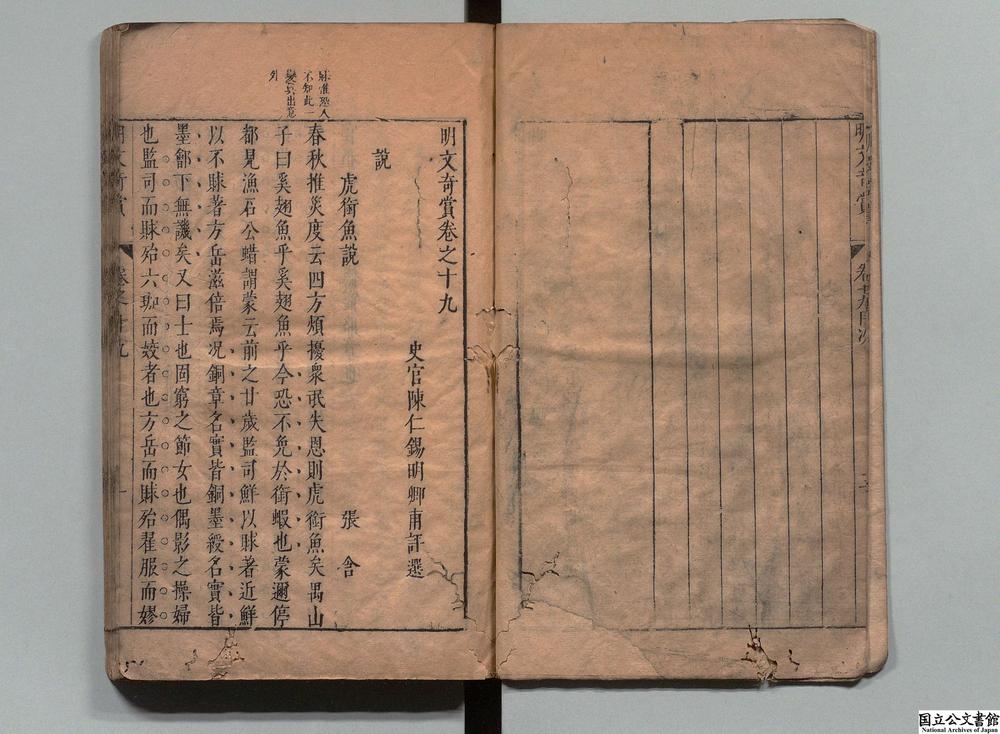 明文奇賞
卷十九目次
明文奇賞卷之十九
史官陳仁錫明卿甫評選
說
虎銜魚說
張含
春秋推災度云四方煩擾衆民失恩則虎銜魚矣禺山
子曰奚翅魚乎奚翅魚乎今恐不免於銜蝦也蒙邇停
都見漁石公蜡謂蒙云前之廿歲監司鮮以賕著近鮮
以不賕著方岳滋倍焉况銅章名實皆銅墨綬名實皆
墨鄶下無譏矣又曰士也固窮之節女也偶影之操婦
也監司而賕殆六珈而姣者也方岳而賕殆翟服而嫪
不知此
變眞出意
外
明文奇賞
卷之十九
一
国立公文書館
National Archives of Japan